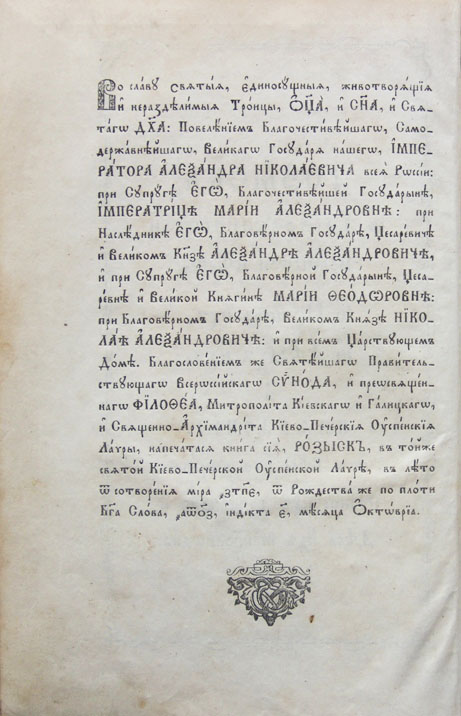 Во славу свѧтыѧ, є҆диносꙋщныѧ, животворѧщїѧ
И҆ нераздѣлимыѧ Троицы, Ѻ҆ЦА̀, и҆ СН҃А, и҆ Свѧ-
тагѡ ДХ҃А: Повелѣнїемъ Благочестивѣйшагѡ, Само-
державнѣйшагѡ, Великагѡ Госꙋдарѧ нашегѡ, І҆МПЕ-
РАТОРА А҆ЛЕѮАНДРА НІКОЛАЕВИЧА всеѧ̀ Рѡссїи:
при Сꙋпрꙋгѣ Є҆ГѠ̀, Благочестивѣйшей Госꙋдарынѣ,
І҆МПЕРАТРИЦѢ МАРІИ А҆ЛЕѮАНДРОВНѢ: при
Наслѣдникѣ Є҆ГѠ̀, Благовѣрномъ Госꙋдарѣ, Цесаревичѣ
и҆ Великомъ Кнѧ҃зѣ А҆ЛЕѮАНДРѢ А҆ЛЕѮАНДРОВИЧѢ,
и҆ при Сꙋпрꙋгѣ Є҆ГѠ̀, Благовѣрной Госꙋдарынѣ, Цеса-
ревнѣ и҆ Великой Кнѧгинѣ МАРІИ ѲЕОДѠРОВНѢ:
при Благовѣрномъ Госꙋдарѣ, Великомъ Кнѧзѣ НІКО-
ЛАѢ А҆ЛЕѮАНДРОВИЧѢ: и҆ при всемъ Царствꙋющемъ
Домѣ. Благословенїемъ же Свѧтѣйшагѡ Правитель-
ствꙋющагѡ Всерѡссїйскагѡ СѴНОДА, и҆ преѡсвѧщен-
нагѡ ФІЛОѲЕА, Митрополїта Кїевскагѡ и҆ Галицкагѡ,
и҆ Свѧщенно-А҆рхїмандрїта Кїево-Печерскїѧ Оу҆спенскїѧ
Лаѵры, напечатасѧ книга сїѧ̀, РОЗЫСКЪ, въ тойже
свѧтой Кїево-Печерской Оу҆спенской Лаѵрѣ, въ лѣто
ѿ сотворенїѧ мїра ҂зтпє҃, ѿ Рождества же по плоти
Бг҃а Слова, ҂аѡо҃з, і҆ндїкта є҃, мѣсѧца Ѻ҆ктѡврїа.